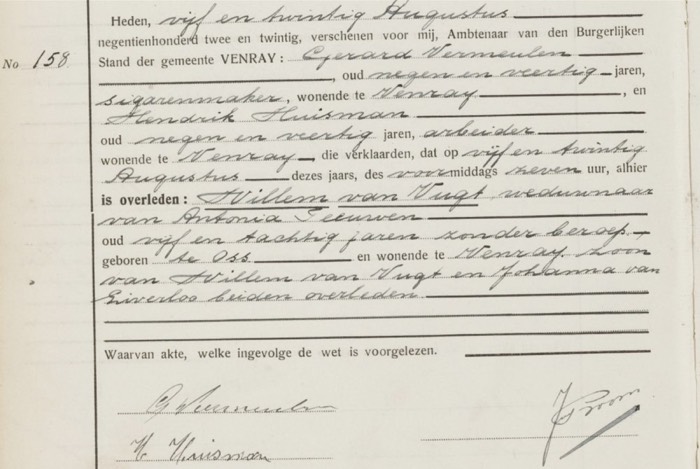 Heden, vijf en twintig Augustus
negentienhonderd twee en twintig, verschenen voor mij, Ambtenaar van den Burgerlijken
No 158
Stand der gemeente VENRAY: Gerard Vermeulen
, oud negen en veertig jaren,
sigarenmaker, wonende te Venray, en
Hendrik Huisman
oud negen en veertig jaren, arbeider
wonende te Venray, die verklaarden, dat op vijf en twintig
Augustus dezes jaars, des voormiddags zeven uur, alhier
is overleden: Willem van Vugt weduwnaar
van Antonia Teeuwen
oud vijf en tachtig jaren zonder beroep
geboren te Oss en wonende te Venray zoon
van Willem van Vugt en Johanna van
beiden overleden
Waarvan akte, welke ingevolge de wet is voorgelezen.
G Vermeulen
H Huisman